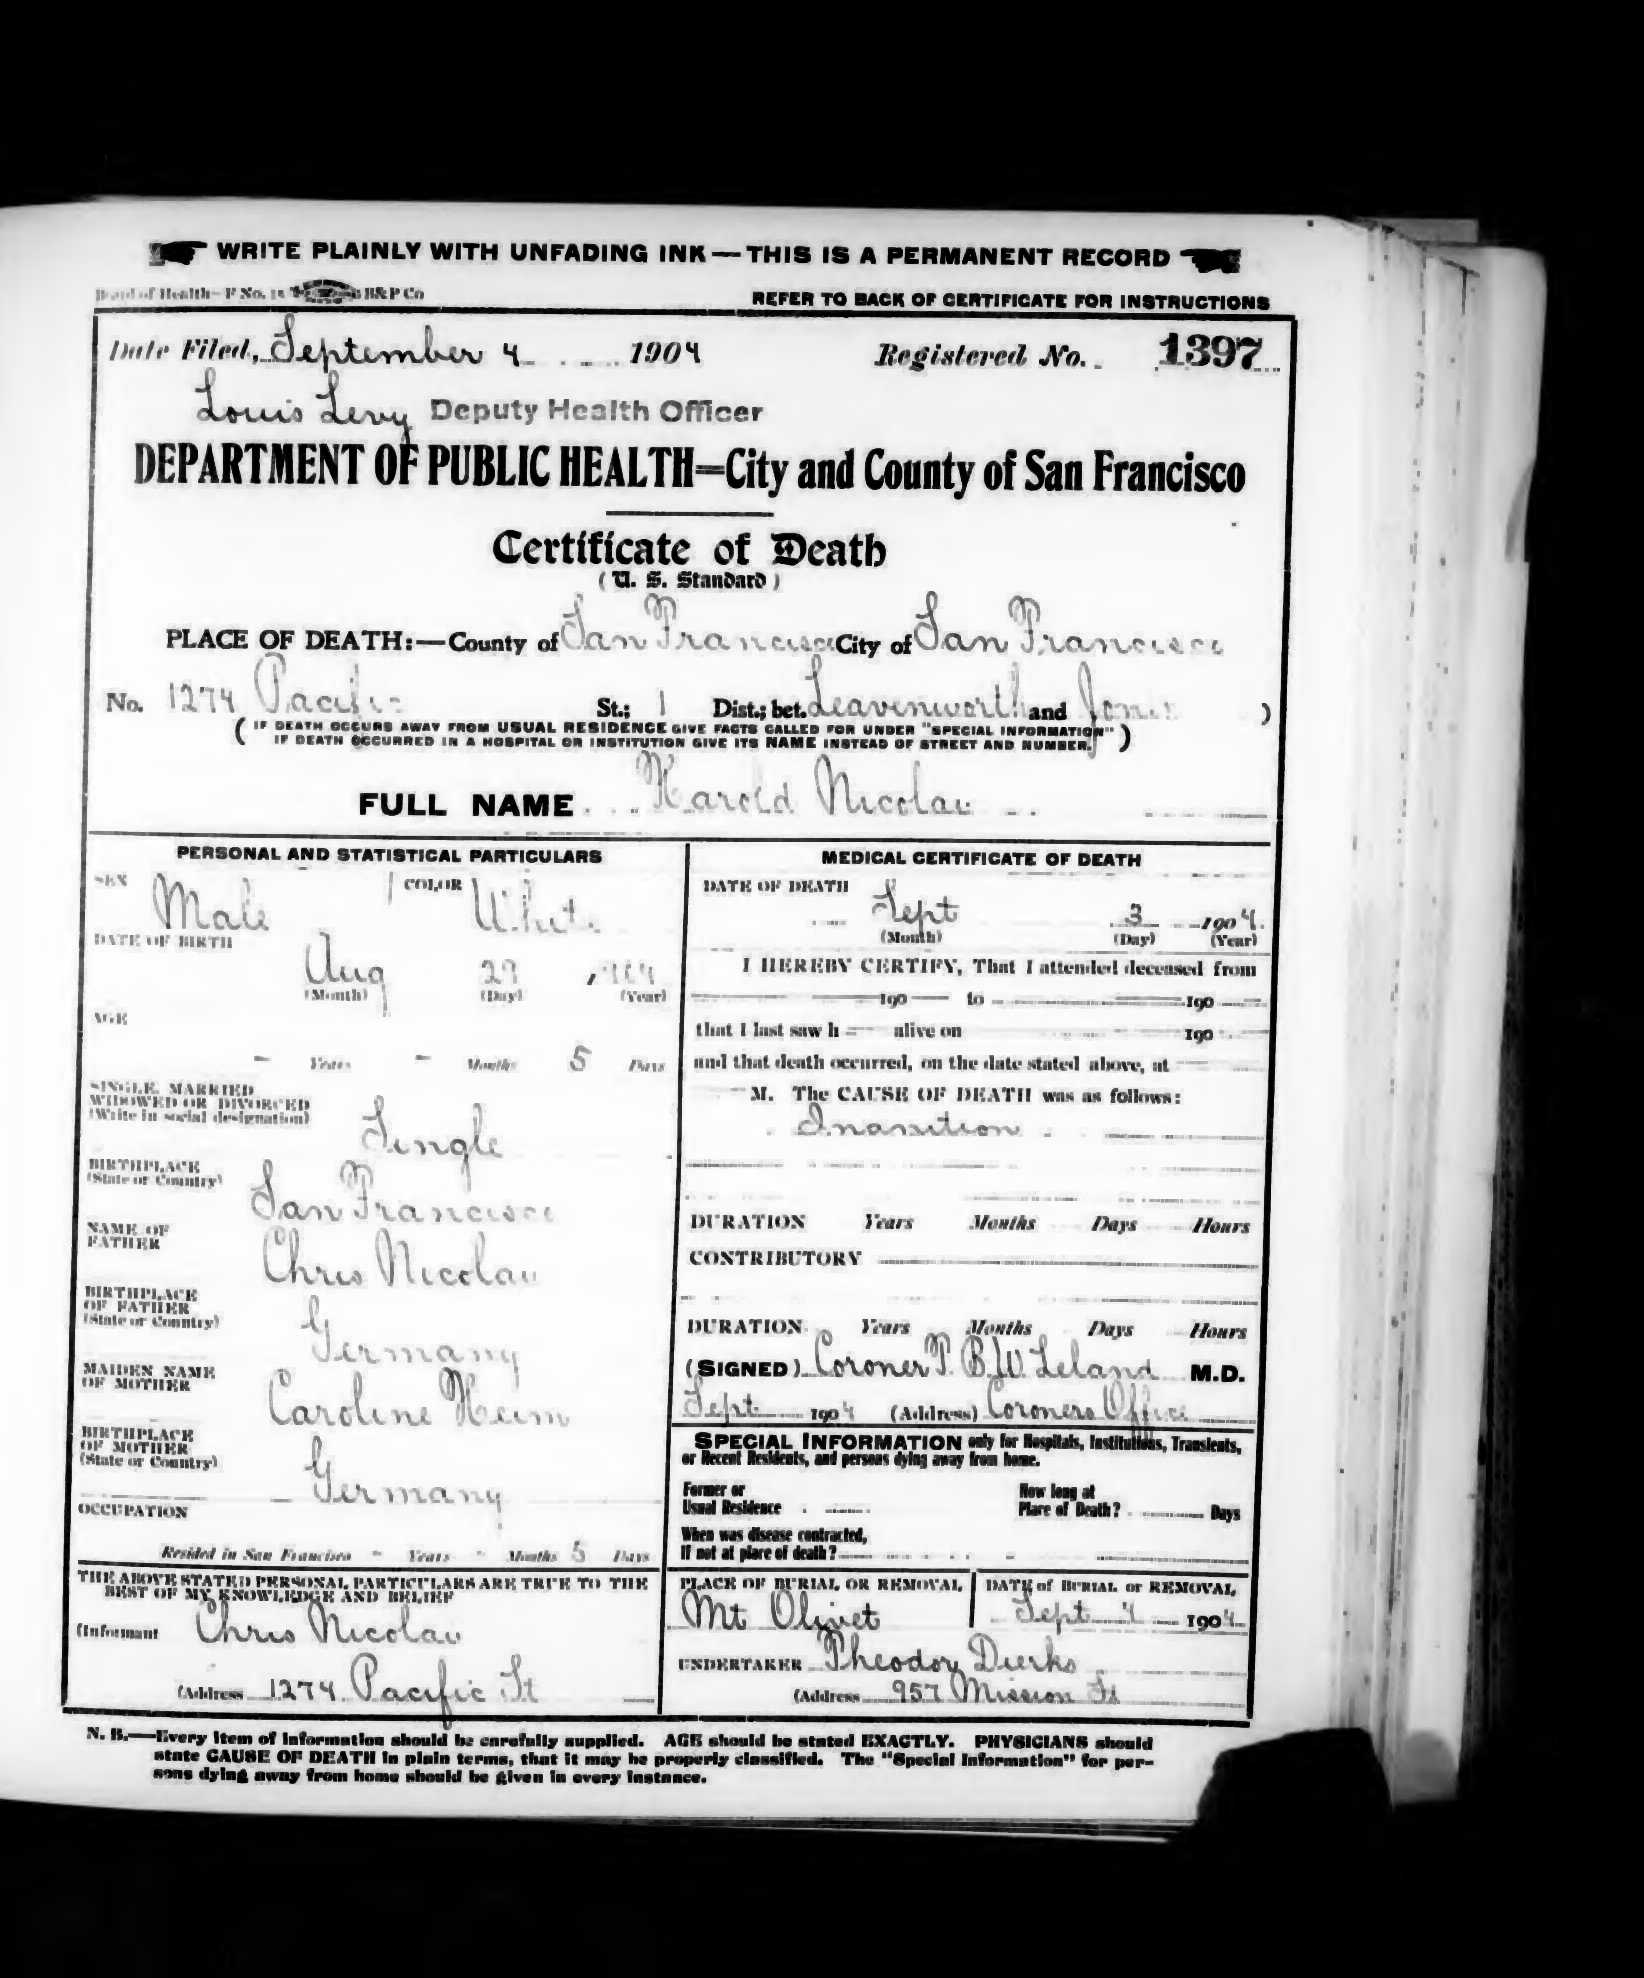 WRITE PLAINLY WITH UNFADING INK—THIS IS A PERMANENT RECORD
Board of Health—F No. 15 B&P Co
REFER TO BACK OF CERTIFICATE FOR INSTRUCTIONS
Date Filed, September 4 1904 Registered No. 1397
Louis Levy Deputy Health Officer
DEPARTMENT OF PUBLIC HEALTH=City and County of San Francisco
Certificate of Death
(U. S. Standard)
PLACE OF DEATH:—County of San Francisco City of San Francisco
No. 1274 Pacific St.; 1 Dist.; bet. Leavenworth and Jones )
( IF DEATH OCCURS AWAY FROM USUAL RESIDENCE GIVE FACTS CALLED FOR UNDER "SPECIAL INFORMATION"
IF DEATH OCCURRED IN A HOSPITAL OR INSTITUTION GIVE ITS NAME INSTEAD OF STREET AND NUMBER. )
FULL NAME Harold Nicolau
PERSONAL AND STATISTICAL PARTICULARS
SEX Male COLOR White
DATE OF BIRTH
Aug 29, 1904
(Month) (Day) (Year)
AGE
- Years - Months 5 Days
SINGLE, MARRIED
WIDOWED OR DIVORCED
(Write in social designation)
Single
BIRTHPLACE
(State or Country)
San Francisco
NAME OF
FATHER
Chris Nicolau
BIRTHPLACE
OF FATHER
(State or Country)
Germany
MAIDEN NAME
OF MOTHER
Caroline Heim
BIRTHPLACE
OF MOTHER
(State or Country)
Germany
OCCUPATION
Resided in San Francisco - Years - Months 5 Days
THE ABOVE STATED PERSONAL PARTICULARS ARE TRUE TO THE
BEST OF MY KNOWLEDGE AND BELIEF
(Informant Chris Nicolau
(Address 1274 Pacific St
MEDICAL CERTIFICATE OF DEATH
DATE OF DEATH
Sept 3 1904.
(Month) (Day) (Year)
I HEREBY CERTIFY, That I attended deceased from
190 to 190
that I last saw h alive on 190
and that death occurred, on the date stated above, at
M. The CAUSE OF DEATH was as follows:
Inanition
DURATION Years Months Days Hours
CONTRIBUTORY
DURATION Years Months Days Hours
(SIGNED) Coroner T. B. W. Leland M.D.
Sept 1904 (Address) Coroners Office
SPECIAL INFORMATION only for Hospitals, Institutions, Transients,
or Recent Residents, and persons dying away from home.
Former or
Usual Residence
How long at
Place of Death? Days
When was disease contracted,
If not at place of death?
PLACE OF BURIAL OR REMOVAL DATE of BURIAL or REMOVAL
Mt Olivet Sept 4 1904
UNDERTAKER Theodor Dierks
(Address 957 Mission St
N. B.—Every item of information should be carefully supplied. AGE should be stated EXACTLY. PHYSICIANS should
state CAUSE OF DEATH in plain terms, that it may be properly classified. The "Special Information" for per-
sons dying away from home should be given in every instance.